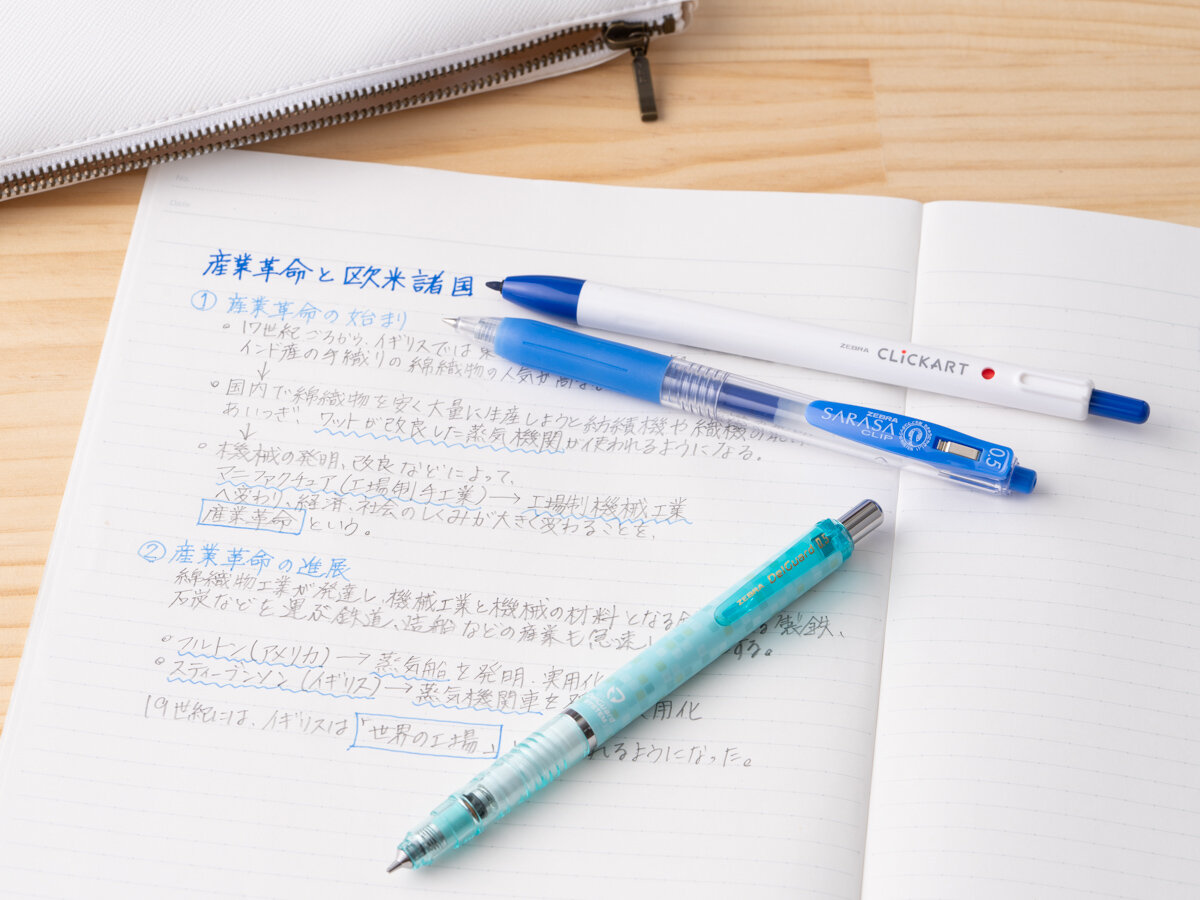 No.
Date
産業革命と欧米諸国
① 産業革命の始まり
◦ 17世紀ごろから、イギリスでは東
インド産の手織りの綿織物の人気が高ま
↓
◦ 国内で綿織物を安く大量に生産しようと紡績機や織機の
あいつぎ、ワットが改良した蒸気機関が使われるようになる。
↓
◦ 機械の発明、改良などによって、
マニファクチュア(工場制手工業)→工場制機械工業
へ変わり、経済、社会のしくみが大きく変わることを、
産業革命 という。
② 産業革命の進展
綿織物工業が発達し、機械工業と機械の材料となる 製鉄、
石炭などを運ぶ鉄道、造船などの産業も急速 する。
◦ フルトン(アメリカ)→蒸気船を発明、実用化
◦ スティーブンソン(イギリス)→蒸気機関車を 実用化
19世紀には、イギリスは「世界の工場」と れるようになった。
ZEBRA CLiCKART
ZEBRA
SARASA
CLIP
0.5
ZEBRA DelGuard 0.5